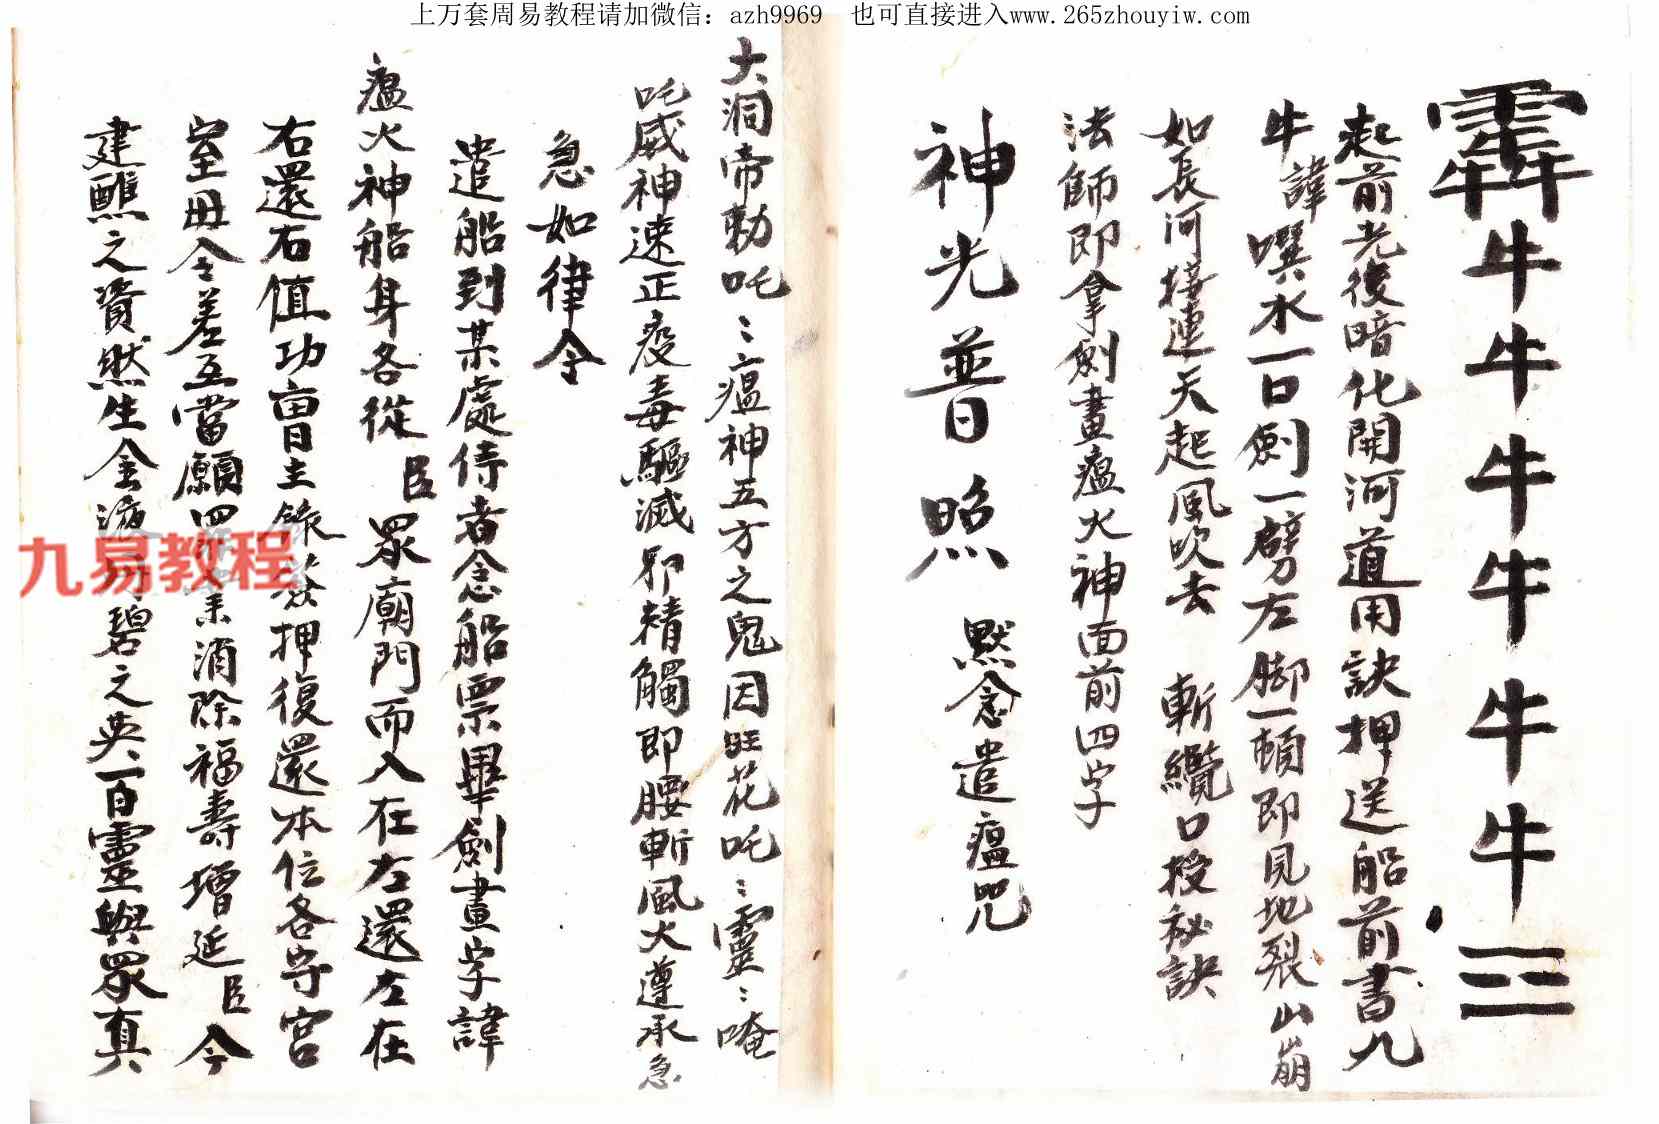 上万套周易教程请加微信：azh9969　也可直接进入www.265zhouyiw.com
牛牛牛牛牛牛
起前光後暗化開河道用訣押送船前書九
牛諱噀水一口劍一劈左脚一頓即見地裂山崩
如長河接連天起風吹去　斬纜口授秘訣
法師即拿劍畫瘟火神面前四字
神光普照　默念遣瘟咒
大洞帝勅吒〻瘟神五方之鬼因旺花吒〻靈〻唵
吒威神速正疫毒驅滅邪精觸即腰斬風火遵承急
急如律令
遣船到某處侍者念船票畢劍畫字諱
瘟火神船身各從臣眾廟門而入在左還左在
右還右值功曹主錄簽押復還本位各守宮
室毋令差互當願四消除福壽增延臣今
建醮之資然生金液碧之英一百靈與眾真
九易教程